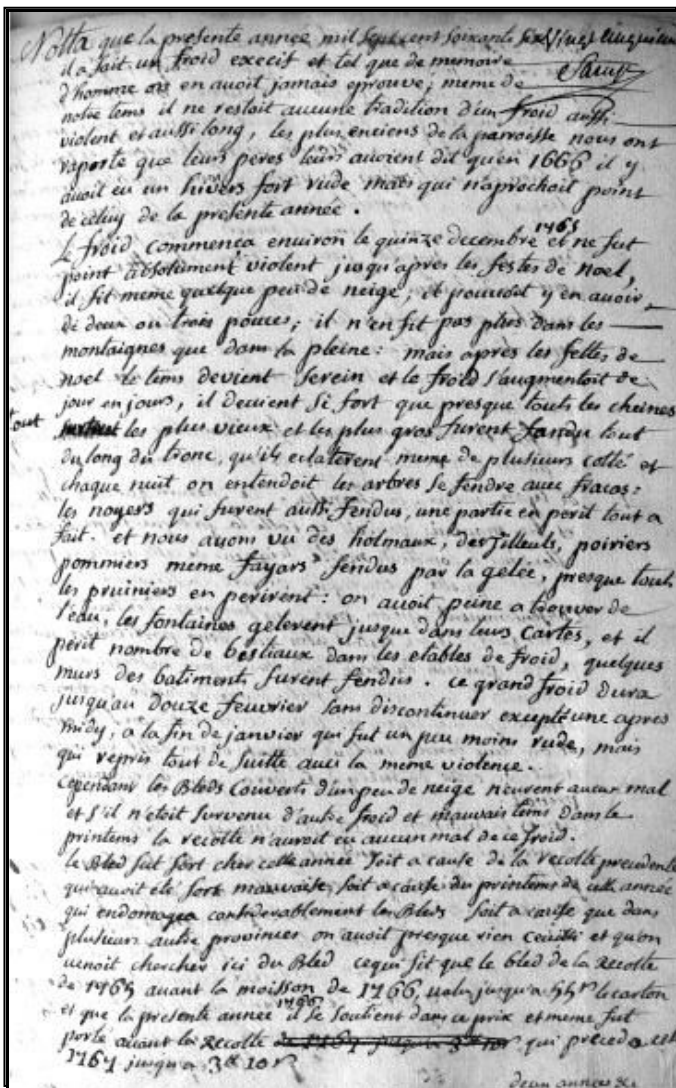 Notta que la presente année mil sept cent soixante six
il a fait un froid execif et tel que de memoire
d'homme on en avoit jamais eprouve; meme de
notre tems il ne restoit aucune tradition d'un froid aussi
violent et aussi long, les plus enciens de la parroisse nous ont
raporté que leurs peres leurs avoient dit qu'en 1666 il y
avoit eu un hivers fort rude mais qui n'aprochoit point
de celuy de la presente année.
Le froid commença environ le quinze decembre 1765 et ne fut
point absolument violent jusqu'apres les festes de noel,
il fit meme quelque peu de neige, il pouvoit y en avoir
di deux ou trois pouces; il n'en fit pas plus dans les
montaignes que dans la pleine: mais après les festes de
noel le tems devient serein et le froid s'augmentoit de
jour en jours, il devient si fort que presque touts les cheines
tout les plus vieux et les plus gros furent fandu tout
du long du tronc, qu'ils eclaterent meme de plusieurs collé et
chaque nuit on entendoit les arbres se fendre avec fracas:
les noyers qui furent aussi fendus, une partie en perit tout a
fait. et nous avons vu des holmaux, des Tilleuls, poiriers
pommiers meme fayars fendus par la gelée, presque touts
les pruiniers en perirent: on avoit peine a trouver de
l'eau, les fontaines gelerent jusque dans leurs cartes, et il
perit nombre de bestiaux dans les etables de froid, quelques
murs des batiments furent fendus. ce grand froid dura
jusqu'au douze feuvrier sans discontinuer excepté une apres
midy, a la fin de janvier qui fut un peu moins rude, mais
qui repris tout de suitte avec la meme violence.
cependant les Bleds couverts d'un peu de neige n'eurent aucun mal
et s'il n'etoit survenu d'autre froid et mauvais tems dans le
printems la recolte n'auroit eu aucun mal de ce froid.
le Bled fut fort cher cette année soit a cause de la recolte precedente
qui avoit été fort mauvaise, soit a cause du printems de cette année
qui endomagea considerablement les Bleds soit a cause que dans
plusieurs autre provinces on avoit presque rien ceuilli et qu'on
venoit chercher ici du Bled ce qui fit que le bled de la Recolte
de 1765 avant la moisson de 1766, valu jusqu'a le carton
et que la presente année 1766 il se soutient dans ce prix et meme fut
porté avant la Recolte qui preceda
1767 jusqu'a 3# 10
deux années